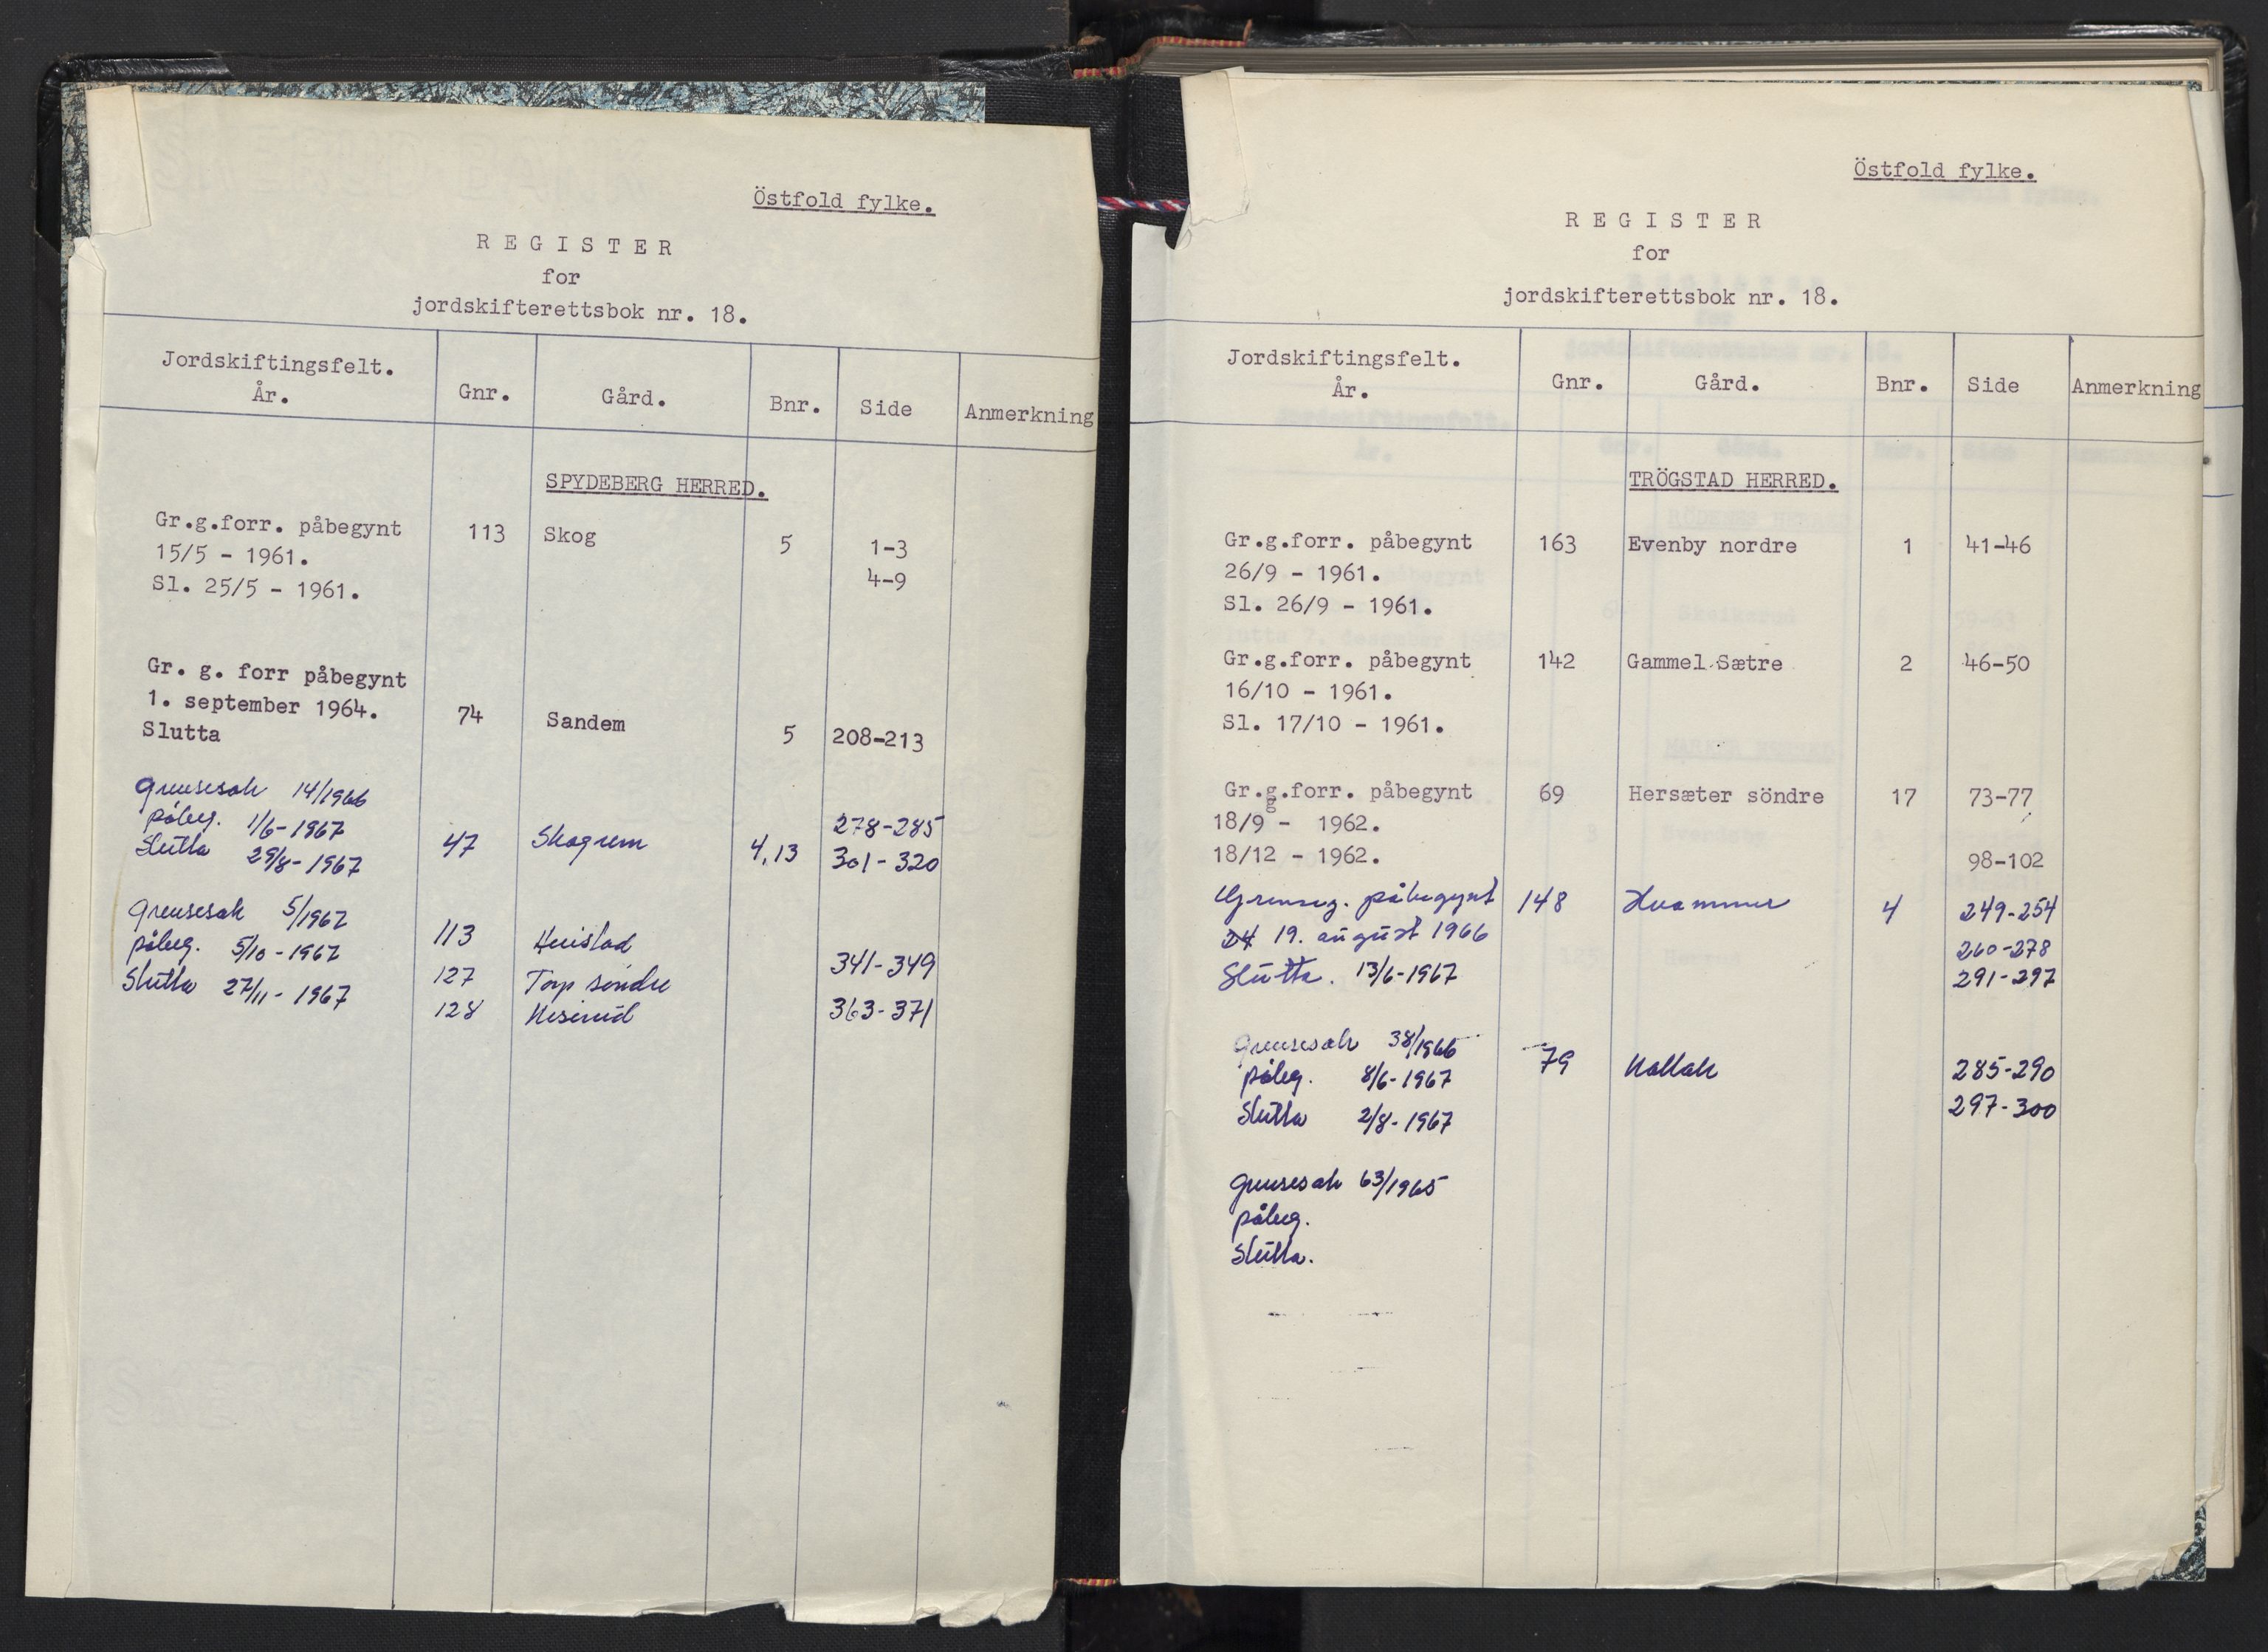 Östfold fylke.
REGISTER
for
jordskifterettsbok nr. 18.
Jordskiftingsfelt. År. Gnr. Gård. Bnr. Side Anmerkning
SPYDEBERG HERRED.
Gr.g.forr. påbegynt 113 Skog 5 1-3
15/5 - 1961. 4-9
Sl. 25/5 - 1961.
Gr. g. forr påbegynt
1. september 1964. 74 Sandem 5 208-213
Slutta
Grensesak 14/1966
påbeg. 1/6-1967 278-285
Slutta 29/8-1967 47 Skogrem 4,13 301-320
Grensesak 5/1967 113
påbeg. 5/10-1967 127 Torp söndre 341-349
Slutta 27/11-1967 128 363-371
Östfold fylke.
REGISTER
for
jordskifterettsbok nr. 18.
Jordskiftingsfelt. År. Gnr. Gård. Bnr. Side Anmerkning
TRÖGSTAD HERRED.
Gr.g.forr. påbegynt 163 Evenby nordre 1 41-46
26/9 - 1961.
Sl. 26/9 - 1961.
Gr.g.forr. påbegynt 142 Gammel Sætre 2 46-50
16/10 - 1961.
Sl. 17/10 - 1961.
Gr.g.forr. påbegynt 69 Hersæter söndre 17 73-77
18/9 - 1962.
18/12 - 1962. 98-102
Grenseg. påbegynt 148 Hvammer 4 249-254
19. august 1966 260-278
Slutta. 13/6-1967 291-297
Grensesak 38/1966 79 Kallak 285-290
påbeg. 8/6-1967 297-300
Slutta 2/8-1967
Grensesak 63/1965
påbeg.
Slutta.